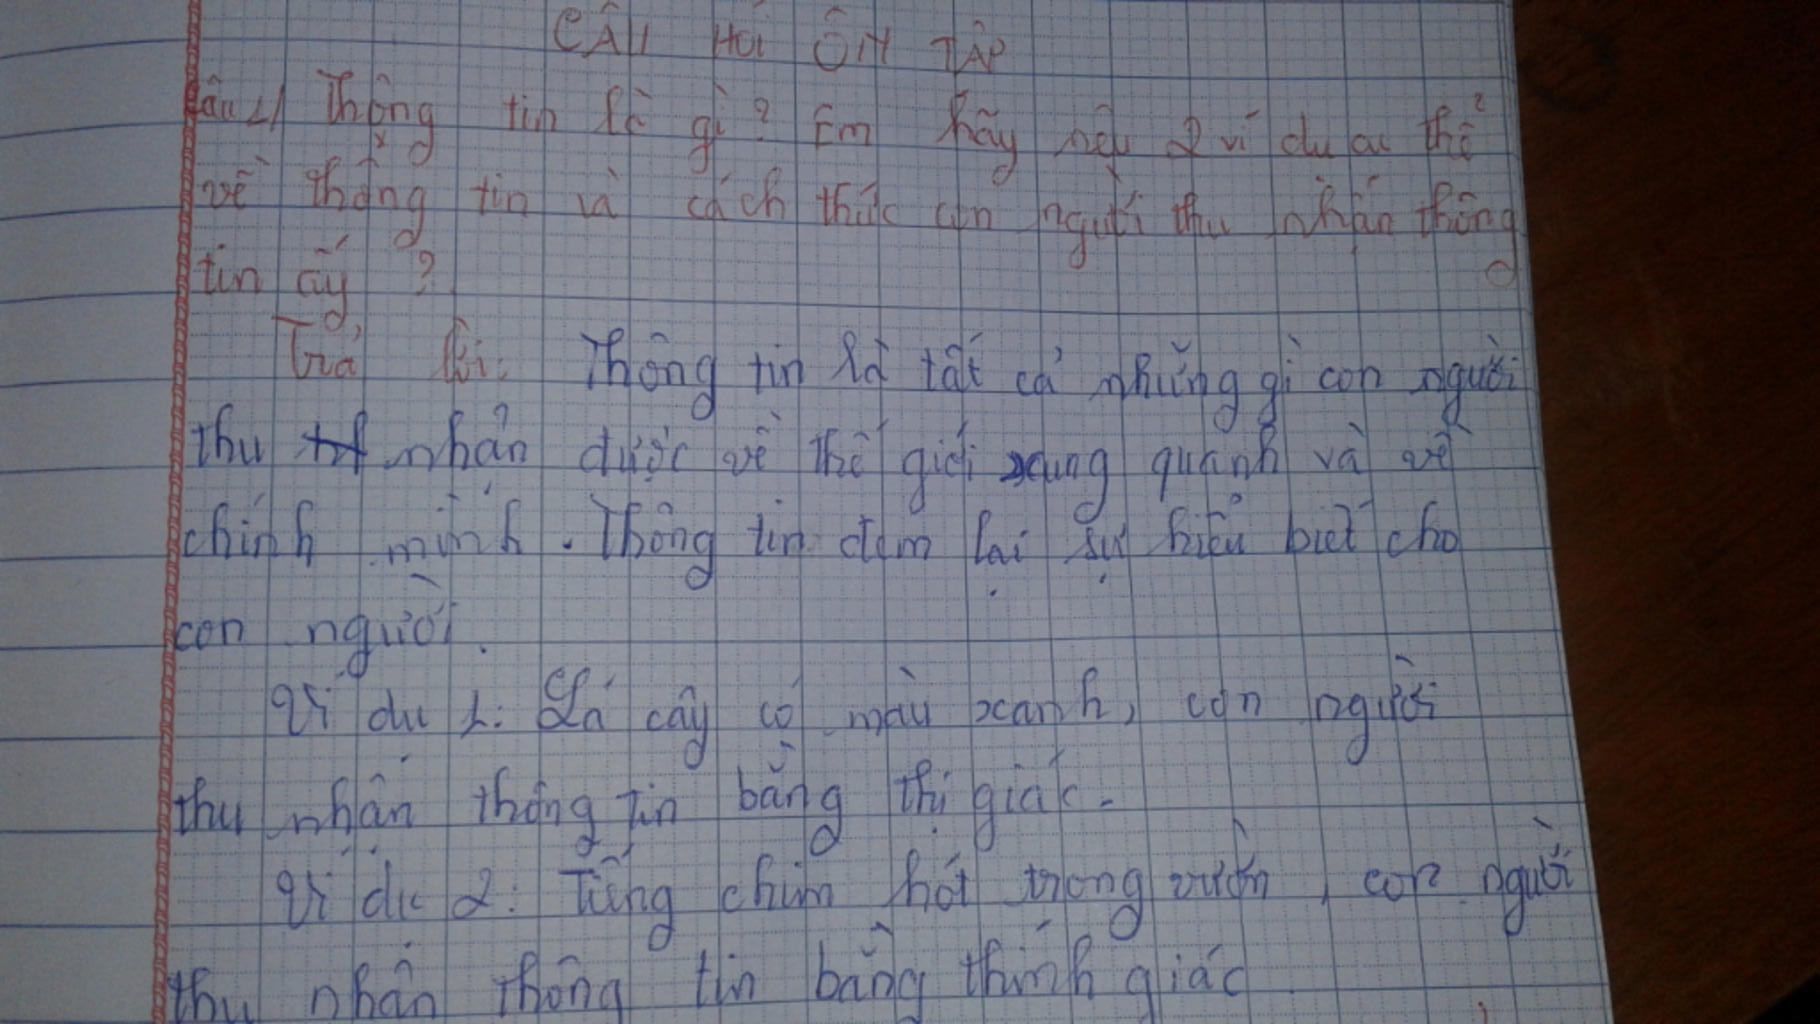 CÂU HỎI ÔN TẬP
Câu 1/ Thông tin là gì? Em hãy nêu 2 ví dụ cụ thể
về thông tin và cách thức con người thu nhận thông
tin ấy ?
Trả lời: Thông tin là tất cả những gì con người
thu nhận được về thế giới xung quanh và về
chính mình. Thông tin đem lại sự hiểu biết cho
con người.
Ví dụ 1: Lá cây có màu xanh, con người
thu nhận thông tin bằng thị giác.
Ví dụ 2: Tiếng chim hót trong vườn, con người
thu nhận thông tin bằng thính giác